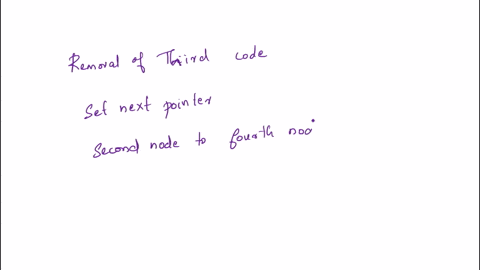 Removal of Third code
Set next pointer
Second node to fourth noo